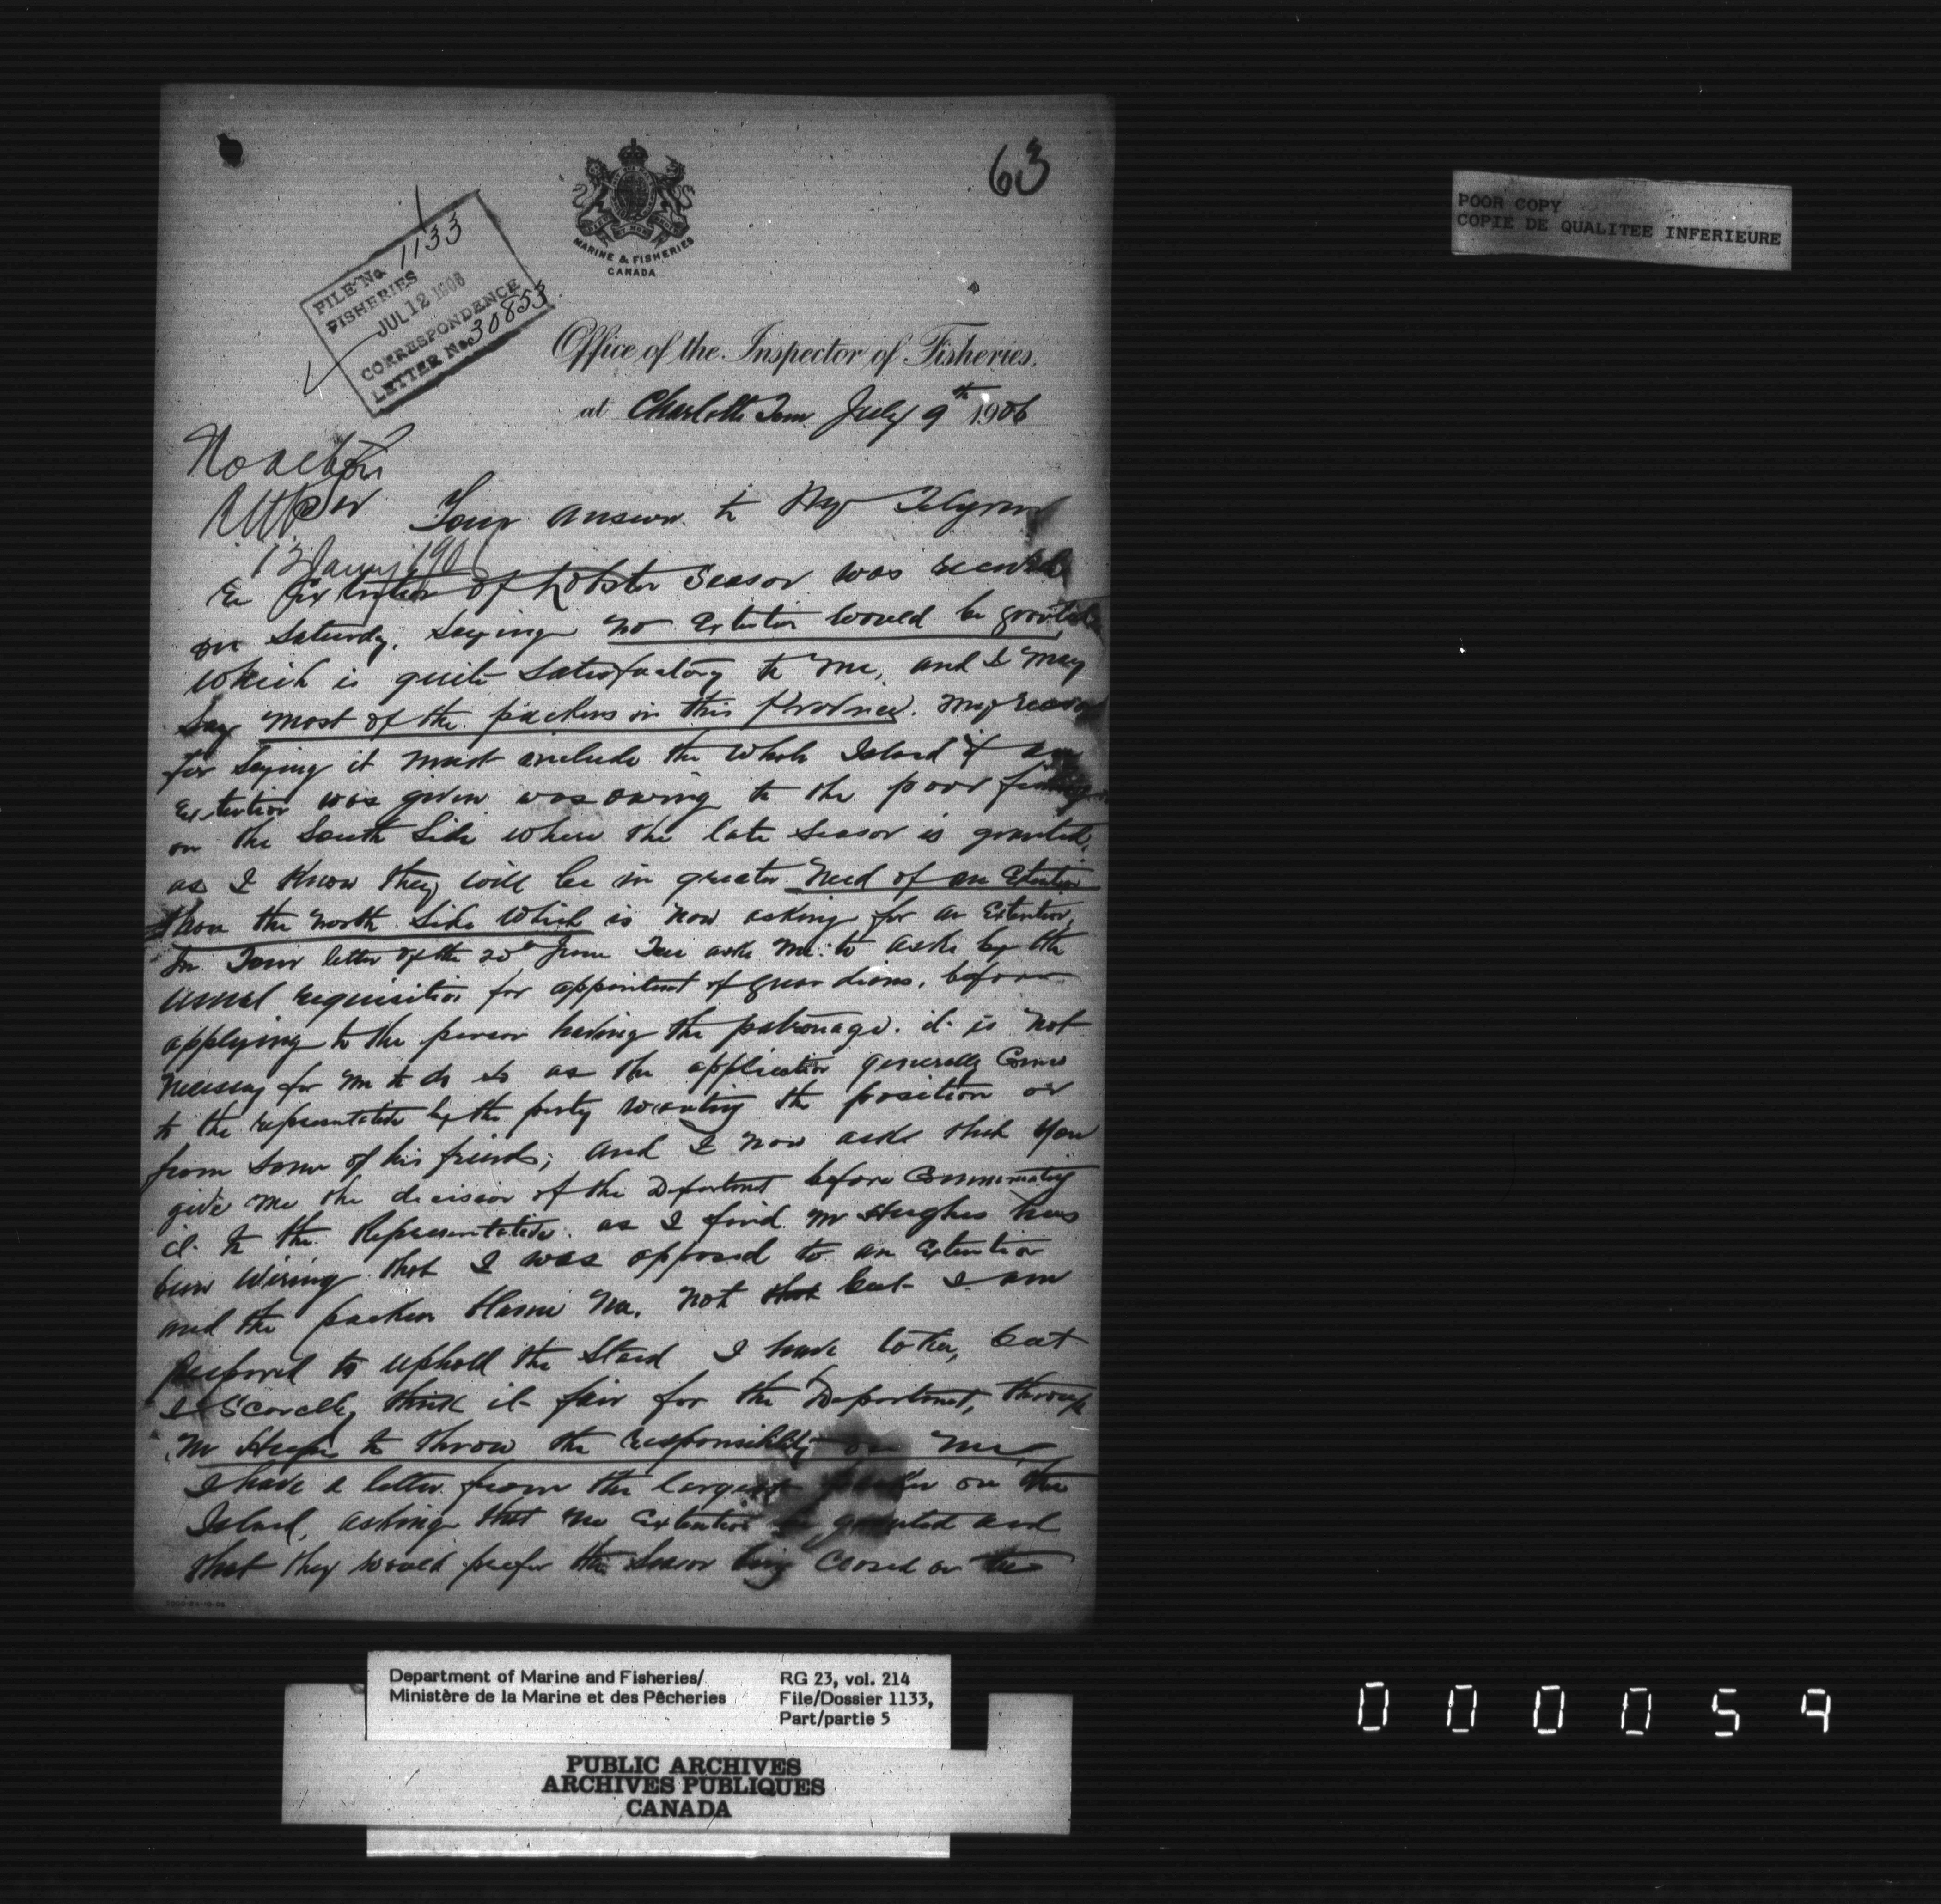 63
MARINE & FISHERIES
CANADA
FILE No. 1133
FISHERIES
JUL 12 1906
CORRESPONDENCE
LETTER No. 30853
Office of the Inspector of Fisheries,
at Charlotte Town July 9th 1906
No action
Your answer to My Telegram
re Extention of Lobster Season was received
on Saturday, saying no Extention would be granted
which is quite satisfactory to me, and I may
say most of the packers in this Province. My reason
for saying it must include the whole Island if any
Extention was given was owing to the poor fishing
on the South Side where the late season is granted,
as I know they will be in greater need of an Extention
than the north Side which is now asking for an Extention,
In Your letter of the 20th June You ask me to ask by the
usual requisition for appointment of guardians, before
applying to the person having the patronage. it is not
necessary for me to do so as the application generally Comes
to the representative by the party wanting the position or
from some of his friends; and I now ask that you
give me the decision of the Department before Communicating
it to the Representative. as I find Mr Hughes has
been wiring that I was opposed to an Extention
and the packers blame me. not that but I am
prepared to uphold the Stand I have taken, but
I Scarcely think it fair for the Department, through
Mr Hughes to throw the responsibility on me
I have a letter from the largest packer on the
Island, asking that no Extention be granted and
that they would prefer the Season being Closed on the
POOR COPY
COPIE DE QUALITEE INFERIEURE
Department of Marine and Fisheries/
Ministère de la Marine et des Pêcheries
RG 23, vol. 214
File/Dossier 1133,
Part/partie 5
PUBLIC ARCHIVES
ARCHIVES PUBLIQUES
CANADA
000059